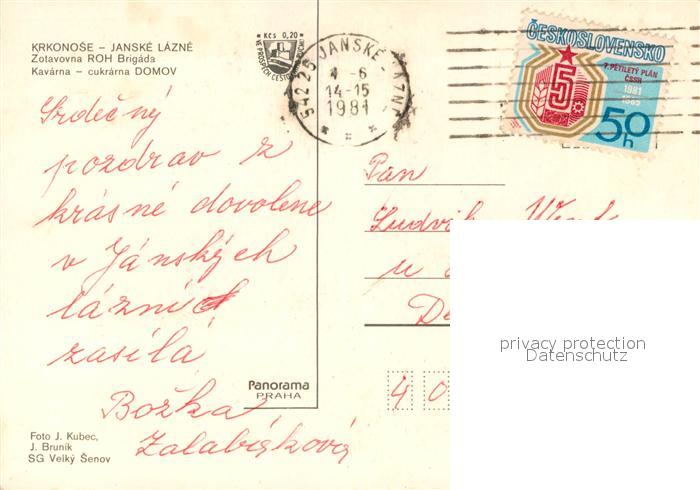 KRKONOŠE – JANSKÉ LÁZNĚ
Zotavovna ROH Brigáda
Kavárna – cukrárna DOMOV
Kčs 0,20
542 25 JANSKÉ LÁZNĚ
-6
14-15
1981
ČESKOSLOVENSKO
7. PĚTILETÝ PLÁN
ČSSR
1981
1985
5
50h
Srdečný
pozdrav z
krásné dovolene
v Jánských
lázních
zasílá
Božka
Zalabáková
Pan
Ludvík
u
40
privacy protection
Datenschutz
Panorama
PRAHA
Foto J. Kubec,
J. Bruník
SG Velký Šenov